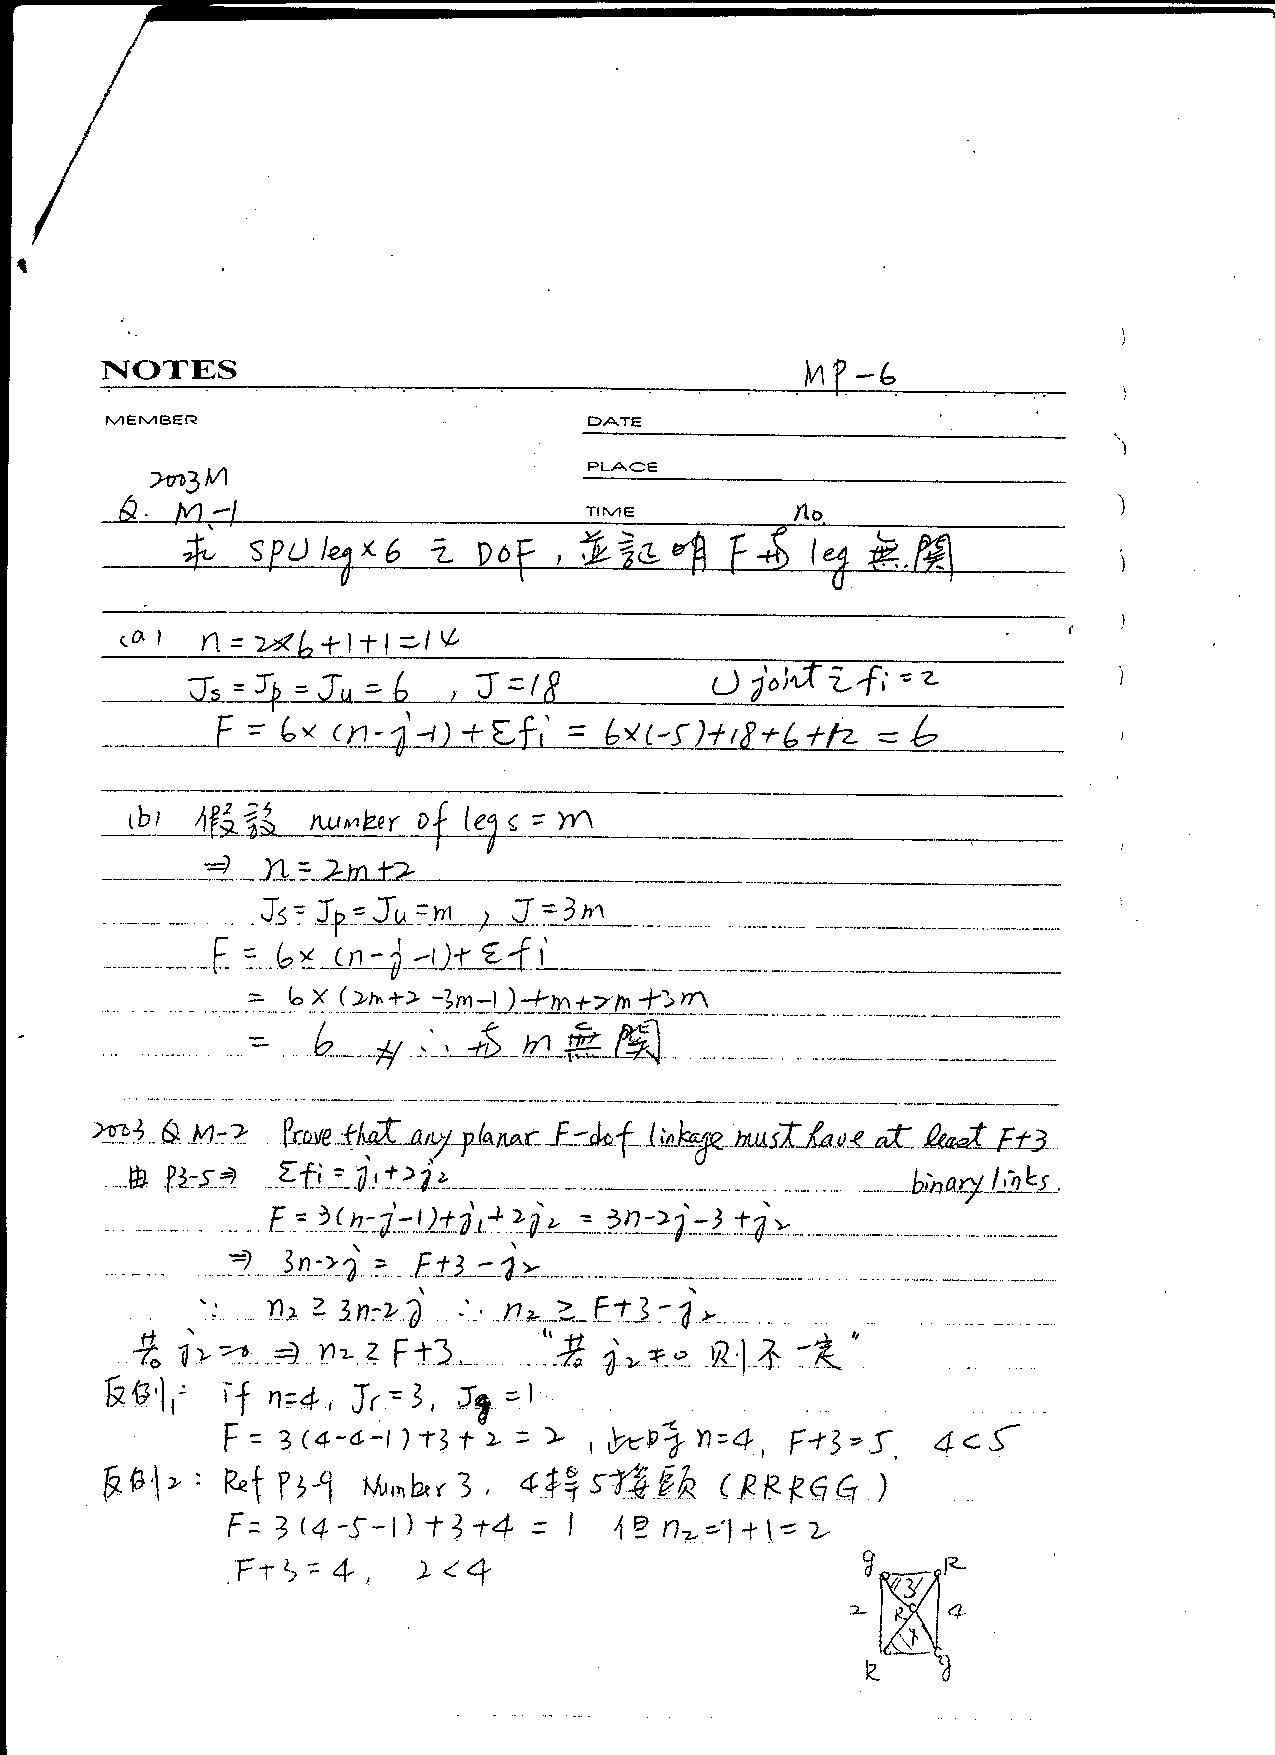 NOTES MP-6
MEMBER DATE
PLACE
2003M
Q. M-1 TIME no.
求 SPU leg×6 之 DOF , 並証明 F 与 leg 無関
(a) n=2×6+1+1=14
Js=Jp=Ju=6 , J=18 U joint 之 fi=2
F = 6×(n-j-1)+Σfi = 6×(-5)+18+6+12 = 6
(b) 假設 number of legs = m
⇒ n=2m+2
Js=Jp=Ju=m , J=3m
F = 6×(n-j-1)+Σfi
= 6×(2m+2-3m-1)+m+2m+3m
= 6 # ∴ 与 m 無関
2003 Q M-2 Prove that any planar F-dof linkage must have at least F+3
由 P3-5⇒ Σfi=j1+2j2 binary links.
F=3(n-j-1)+j1+2j2 = 3n-2j-3+j2
⇒ 3n-2j = F+3-j2
∵ n2≥3n-2j ∴ n2≥F+3-j2
若 j2=0 ⇒ n2≥F+3. "若 j2≠0 則不一定"
反例1: if n=4, Jr=3, Jg=1
F = 3(4-4-1)+3+2=2 , 此時 n=4, F+3=5. 4<5
反例2: Ref P3-9 Number 3. 4桿5接頭 (RRRGG)
F=3(4-5-1)+3+4=1 但 n2=1+1=2
F+3=4, 2<4
g R
3
2 R 4
1
R g